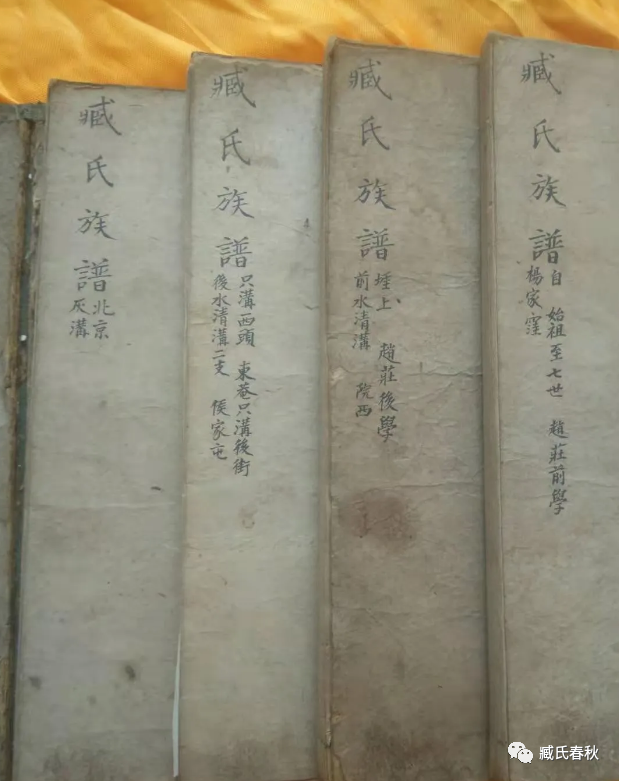 臧氏族譜
自 始祖至七世 趙莊前學
楊家窪
臧氏族譜
上 趙莊後學
前水清溝 院西
臧氏族譜
只溝西頭 東菴只溝後街
後水清溝二支 侯家屯
臧氏族譜
北京
灰溝
臧氏春秋